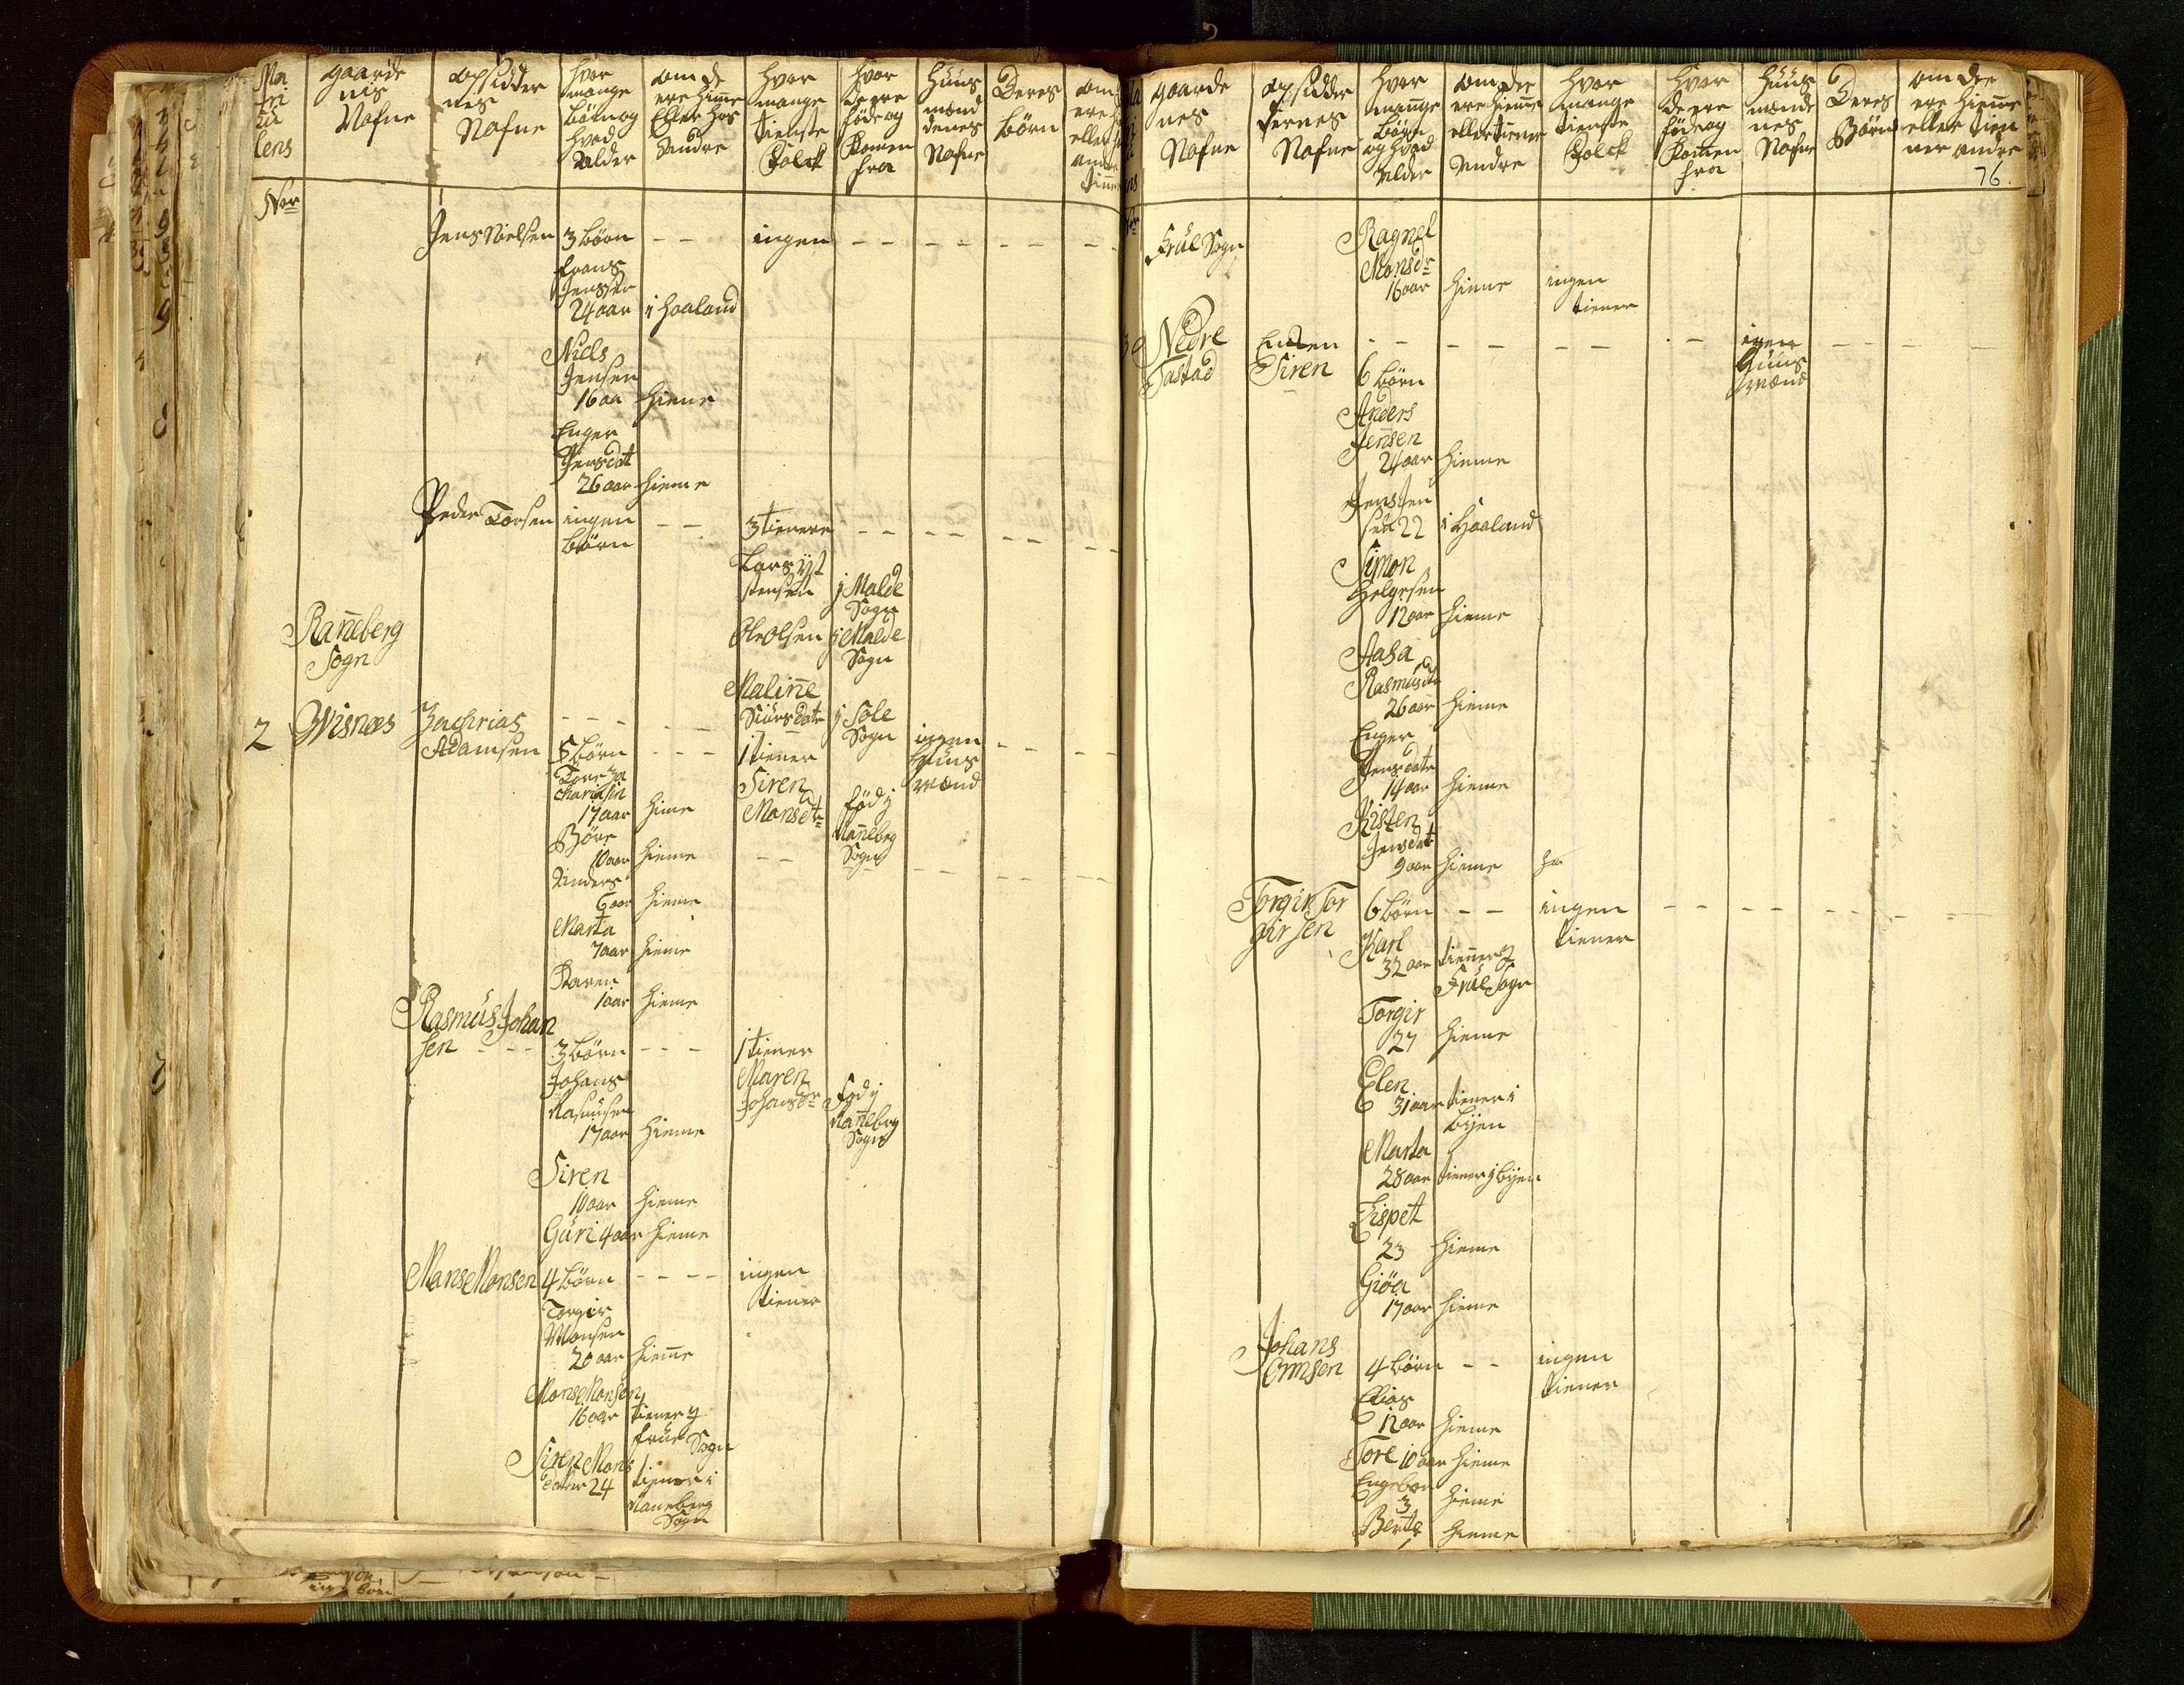 Ma
tri
cu
lens
Nor
gaarde
nes
Nafne
opsidder
nes
Nafne
hvor
mange
börn og
hvad
Alder
om de
ere hime
Eller hos
Andre
hvor
mange
tieniste
Folck
hvor
de ere
föde og
komen
fra
Huus
mænd
denes
Nafne
Deres
börn
om
ere
eller
andre
tiener
Jens Nielsen 3 börn - - ingen - - - - - -
Frans
Jensen
24 aar i Haaland
Niels
Jensen
16 aar hieme
Enger
Jensdat
26 aar hieme
Peder Torsen ingen - - 3 tienere - - - - - -
börn
Lars
stensen j Malde
Sogn
Ranneberg
Sogn
Ole Olsen j Malde
Sogn
Malinne
Siursdatr j Sole
Sogn
2 Wisnæs Zachrias - - - - -
Adamsen 5 börn - - - 1 tiener
ingen
huus
mænd
Tore Za
chariasen
17 aar hime
Siren
Monsdtr
född j
Ranneberg
Sogn
Böre
10 aar hieme - -
Anders
6 aar hieme
Marta
7 aar hieme
Karen
1 aar hieme
Rasmus Johan
sen - - - 3 börn - - - 1 tiener
Johans
Rasmusen
17 aar hieme
Maren
Johansdr
Föd j
Ranneberg
Sogn
Siren
10 aar hieme
Guri 4 aar hieme
Mans Monsen 4 börn - - - - ingen
tiener
Torgir
Monsen
20 aar hieme
Mons Monsen
16 aar tiener y
Frue Sogn
Siren Mons
datter 24 tiener i
Raneberg
Sogn
gaarde
nes
Nafne
opsidder
fernes
Nafne
hvor
mange
börn
og hvad
Alder
om de
ere hieme
eller tiener
Andre
hvor
mange
tieniste
Folck
hvor
de ere
föde og
komen
fra
Huus
mænde
nes
Nafne
Deres
Börn
om de
ere hieme
eller tien
ner andre
76.
Frue Sogn
Ragnel
Monsdr
16 aar hieme ingen
tiener
3 Nedre
Tastad
Enken
Siren
- - - - - - - -
6 börn
igen
huus
mænd
Anders
Jensen
24 aar hieme
Jens Jen
sen 22 i Haaland
Simon
Helgesen
12 aar hieme
Aasa
Rasmusdtr
26 aar hieme
Enger
Jensdatr
14 aar hieme
Kisten
Jensdat
9 aar hieme
Torgir Tor
gir sen
6 börn - - ingen - - - - - - - -
tiener
Karl
32 aar tienner j
Frue Sogn
Torgir
27 hieme
Elen
31 aar tiener i
byen
Marta
28 aar tiener j byen
Lispet
23 hieme
Giöa
17 aar hieme
Johans
Ormsen 4 börn - - ingen
tiener
Elias
12 aar hieme
Tore 10 aar hieme
Engebor
3 hieme
Berte hieme